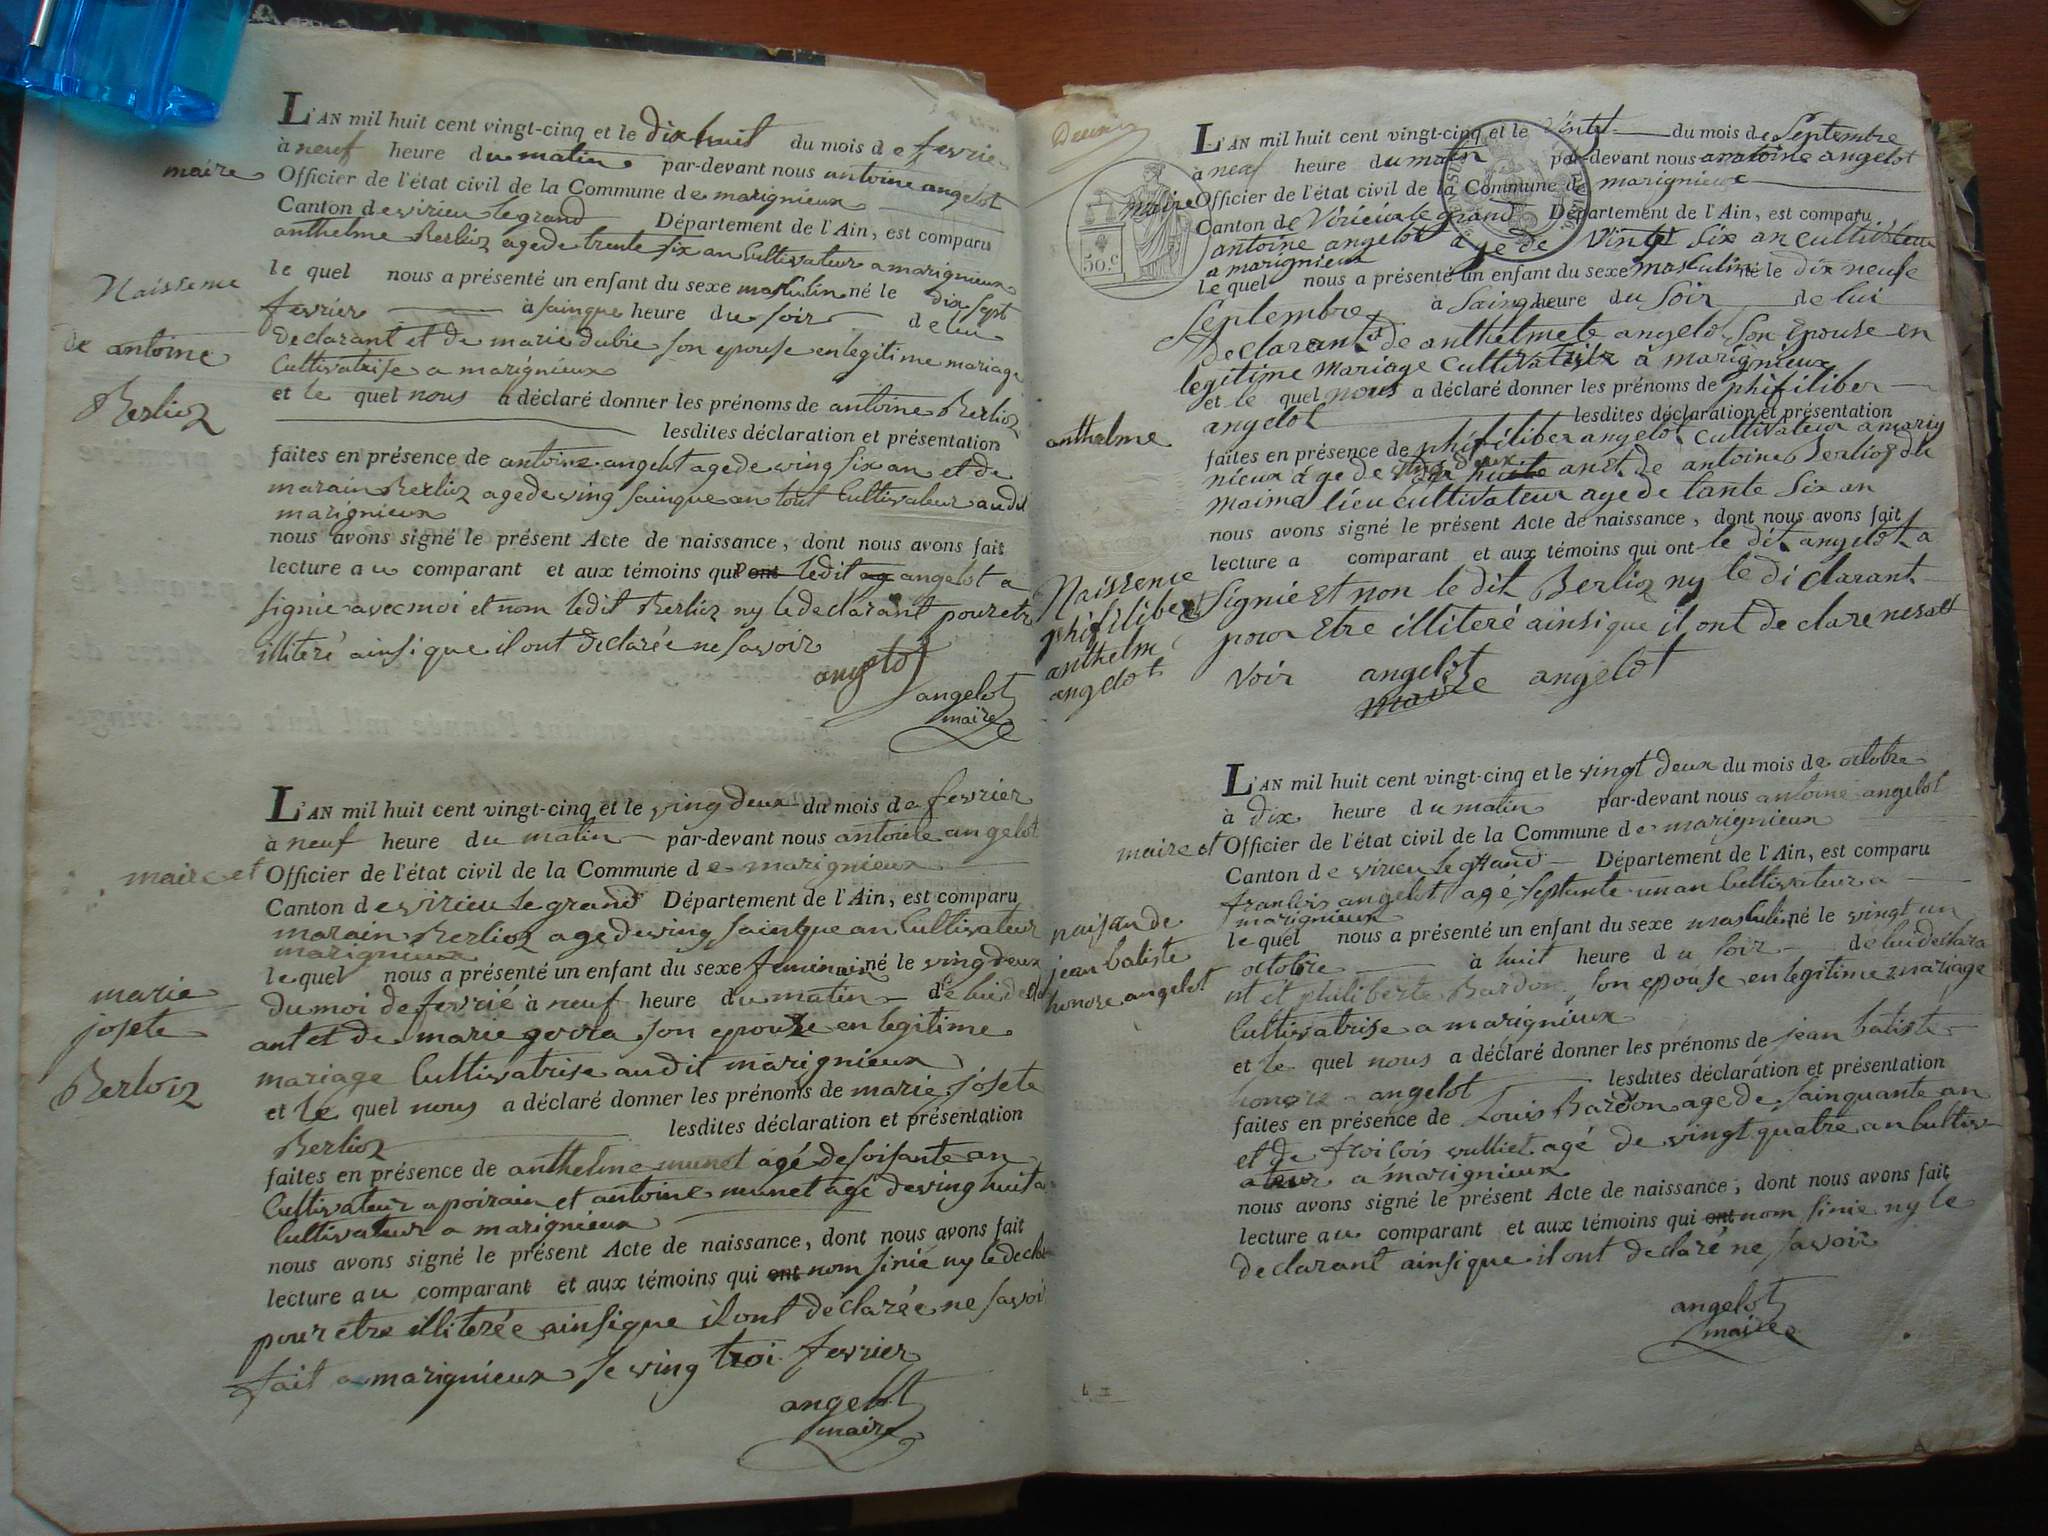 L'AN mil huit cent vingt-cinq et le dix huit du mois de fevrier
à neuf heure du matin par-devant nous antoine angelot
maire Officier de l'état civil de la Commune de marignieux
Canton de virieu le grand Département de l'Ain, est comparu
anthelme Berlioz age de trente six an Cultivateur a marignieux
le quel nous a présenté un enfant du sexe masculin né le dix sept
fevrier à sainque heure du soir de lui
declarant et de marie dubie son epouse en legitime mariage
Cultivatrise a marignieux
et le quel nous a déclaré donner les prénoms de antoine Berlioz
lesdites déclaration et présentation
faites en présence de antoine angelot age de ving six an et de
marain Berlioz age de ving sainque an tout Cultivateur audit
marignieux
nous avons signé le présent Acte de naissance, dont nous avons fait
lecture au comparant et aux témoins qui ont ledit angelot a
signie avec moi et nom ledit Berlioz ny le declarant pour etre
illiteré ainsi que il ont declarée ne savoir
angelot
angelot
maire
Naissense
de antoine
Berlioz
L'AN mil huit cent vingt-cinq et le ving deux du mois de fevrier
à neuf heure du matin par-devant nous antoine angelot
maire et Officier de l'état civil de la Commune de marignieux
Canton de virieu le grand Département de l'Ain, est comparu
marain Berlioz age de ving sainque an Cultivateur
marignieux
le quel nous a présenté un enfant du sexe feminain né le ving deux
du moi de fevrié à neuf heure du matin de lui decla
ant et de marie gorra son epouze en legitime
mariage Cultivatrise audit marignieux
et le quel nous a déclaré donner les prénoms de marie josete
Berlioz lesdites déclaration et présentation
faites en présence de anthelme munet agé de soisante an
Cultivateur a poirain et antoine munet agé de ving huit a
Cultivateur a marignieux
nous avons signé le présent Acte de naissance, dont nous avons fait
lecture au comparant et aux témoins qui ont nom sinié ny le decla
pour etre illiterée ainsi que il ont declarée ne savoi
fait a marignieux le ving troi fevrier
angelot
maire
marie
josete
Berlioz
50.c
L'AN mil huit cent vingt-cinq et le vingt du mois de Septembre
à neuf heure du matin par-devant nous antoine angelot
maire Officier de l'état civil de la Commune de marignieux
Canton de Virieux le grand Département de l'Ain, est comparu
antoine angelot age de vingt six an cultivateur
a marignieux
le quel nous a présenté un enfant du sexe masculin né le dix neufe
Septembre à sainq heure du Soir de lui
declarant et de anthelmete angelot son epouse en
legitime mariage cultivatrise à marignieux
et le quel nous a déclaré donner les prénoms de phifiliber
anthelme angelot lesdites déclaration et présentation
faites en présence de phifiliber angelot cultivateur a marig
nieux àge de ving deux huite an et de antoine Berlioz du
maime lieu cultivateur age de tante six an
nous avons signé le présent Acte de naissance, dont nous avons fait
lecture a comparant et aux témoins qui ont le dit angelot a
Signie et non le dit Berlioz ny le diclarant
pour etre illiteré ainsi que il ont declare ne sat
voir angelot angelot
maire
Naissence
phifiliber
anthelm
angelot
L'AN mil huit cent vingt-cinq et le vingt deux du mois de octobre
à dix heure du matin par-devant nous antoine angelot
maire et Officier de l'état civil de la Commune de marignieux
Canton de virieu le grand Département de l'Ain, est comparu
francois angelot agé septante un an Cultivateur a
marignieux
le quel nous a présenté un enfant du sexe masculin né le vingt un
octobre à huit heure du soir de lui declara
nt et philiberte Bardon son epouse en legitime mariage
Cultivatrise a marignieux
et le quel nous a déclaré donner les prénoms de jean batiste
honore angelot lesdites déclaration et présentation
faites en présence de Louis Bardon age de sainquante an
et de vulliet agé de vingt quatre an Cultiv
ateur a marignieux
nous avons signé le présent Acte de naissance, dont nous avons fait
lecture au comparant et aux témoins qui ont nom sinié ny le
declarant ainsi que il ont declaré ne savoir
angelot
maire
naisande
jean batiste
honore angelot